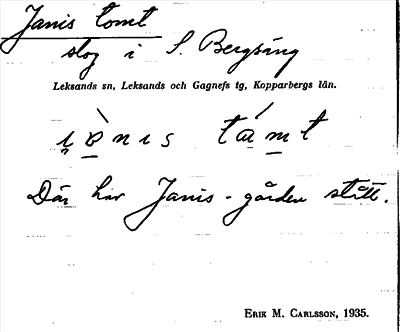 Janis tomt
slog i S. Bergsäng
Leksands sn, Leksands och Gagnefs tg, Kopparbergs län.
Där har Janis-gården stått.
ERIK M. CARLSSON, 1935.